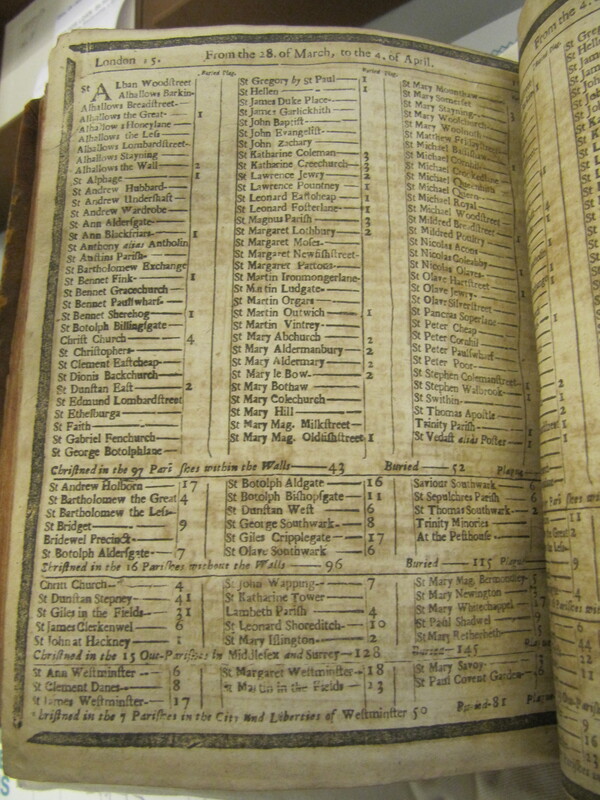 London 15. From the 28. of March, to the 4. of April.
Buried Plag.
St Alban Woodſtreet
Alhallows Barkin-
Alhallows Breadſtreet-
Alhallows the Great- 1
Alhallows Honeylane
Alhallows the Leſs
Alhallows Lombardſtreet-
Alhallows Stayning
Alhallows the Wall 2
St Alphage 1
St Andrew Hubbard-
St Andrew Underſhaft
St Andrew Wardrobe
St Ann Alderſgate-
St Ann Blackfriars- 1
St Anthony alias Antholin
St Auſtins Pariſh-
St Bartholomew Exchange
St Bennet Fink- 1
St Bennet Gracechurch
St Bennet Paulſwharf-
St Bennet Sherehog 1
St Botolph Billingſgate
Chriſt Church 4
St Chriſtophers
St Clement Eaſtcheap-
St Dionis Backchurch
St Dunſtan Eaſt 2
St Edmund Lombardſtreet
St Ethelburga
St Faith
St Gabriel Fenchurch-
St George Botolphlane-
Buried Plag.
St Gregory by St Paul 1
St Hellen 1
St James Duke Place-
St James Garlickhith
St John Baptiſt
St John Evangeliſt-
St John Zachary
St Katharine Coleman- 3
St Katharine Creechurch
St Lawrence Jewry 2
St Lawrence Pountney 1
St Leonard Eaſtcheap 1
St Leonard Foſterlane- 1
St Magnus Pariſh
St Margaret Lothbury 2
St Margaret Moſes-
St Margaret Newfiſhſtreet-
St Margaret Pattons-
St Martin Ironmongerlane-
St Martin Ludgate-
St Martin Orgars
St Martin Outwich 1
St Martin Vintrey-
St Mary Abchurch 2
St Mary Aldermanbury 2
St Mary Aldermary
St Mary le Bow- 2
St Mary Bothaw
St Mary Colechurch
St Mary Hill
St Mary Mag. Milkſtreet
St Mary Mag. Oldfiſhſtreet 1
St Mary Mounthaw
St Mary Somerſet
St Mary Stayning-
St Mary Woolchurch
St Mary Woolnoth
St Matthew Fridayſtreet
St Michael Baſſiſhaw
St Michael Cornhil
St Michael Crookedlane
St Michael Queenhith
St Michael Quern-
St Michael Royal
St Michael Woodſtreet
St Mildred Breadſtreet
St Mildred Poultry
St Nicolas Acons
St Nicolas Coleabby
St Nicolas Olaves-
St Olave Hartſtreet
St Olave Jewry-
St Olave Silverſtreet
St Pancras Soperlane
St Peter Cheap
St Peter Cornhil
St Peter Paulſwharf
St Peter Poor-
St Stephen Colemanſtreet
St Stephen Walbrook
St Swithin-
St Thomas Apoſtle
Trinity Pariſh
St Vedaſt alias Foſter 1
Chriſtned in the 97 Pariſhes within the Walls 43 Buried 52 Plague
St Andrew Holborn 17
St Bartholomew the Great 4
St Bartholomew the Leſs-
St Bridget 9
Bridewel Precinct-
St Botolph Alderſgate- 7
St Botolph Aldgate 16
St Botolph Biſhopſgate 11
St Dunſtan Weſt 6
St George Southwark- 8
St Giles Cripplegate 17
St Olave Southwark 6
Saviour Southwark
St Sepulchres Pariſh 6
St Thomas Southwark 2
Trinity Minories
At the Peſthouſe-
Chriſtned in the 16 Pariſhes without the Walls 96 Buried 115 Plague
Chriſt Church- 4
St Dunſtan Stepney- 41
St Giles in the Fields- 31
St James Clerkenwel 6
St John at Hackney 1
St John Wapping- 7
St Katharine Tower
Lambeth Pariſh 4
St Leonard Shoreditch 10
St Mary Iſlington- 2
St Mary Mag. Bermondſey- 5
St Mary Newington
St Mary Whitechappel
St Paul Shadwel
St Mary Retherhith
Chriſtned in the 15 Out-Pariſhes in Middleſex and Surrey 128 Buried 145
St Ann Weſtminſter 6
St Clement Danes- 8
St James Weſtminſter- 17
St Margaret Weſtminſter- 18
St Martin in the Fields 23
St Mary Savoy-
St Paul Covent Garden-
Chriſtned in the 7 Pariſhes in the City and Liberties of Weſtminſter 50 Buried 81 Plague